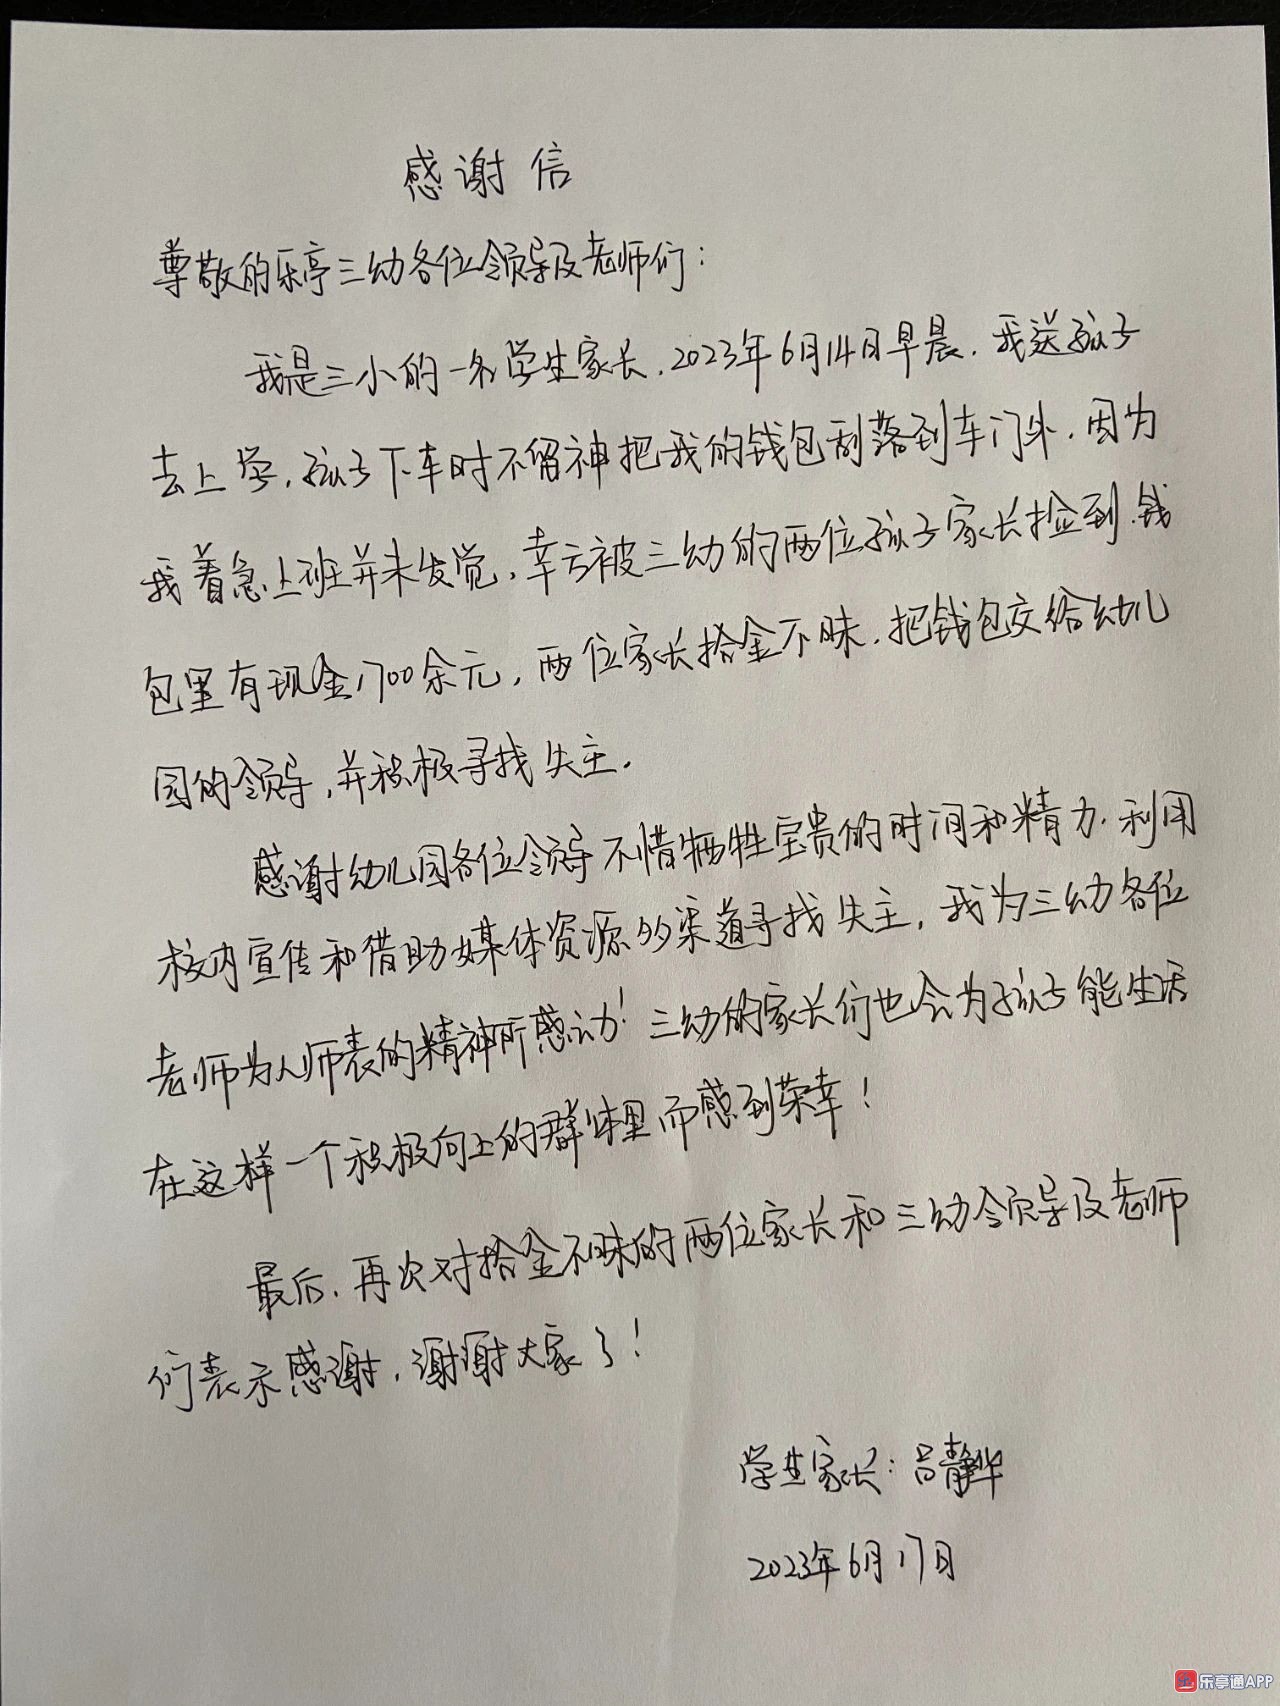 感谢信
尊敬的乐亭三幼各位领导及老师们：
我是三小的一名学生家长，2023年6月14日早晨，我送孩子
去上学，孩子下车时不留神把我的钱包刮落到车门外，因为
我着急上班并未发觉，幸亏被三幼的两位孩子家长捡到，钱
包里有现金1700余元，两位家长拾金不昧，把钱包交给幼儿
园的领导，并积极寻找失主。
感谢幼儿园各位领导不惜牺牲宝贵的时间和精力，利用
校内宣传和借助媒体资源的渠道寻找失主，我为三幼各位
老师为人师表的精神所感动！三幼的家长们也会为孩子能生活
在这样一个积极向上的群体里而感到荣幸！
最后，再次对拾金不昧的两位家长和三幼领导及老师
们表示感谢，谢谢大家了！
学生家长：吕静华
2023年6月17日
乐亭通APP